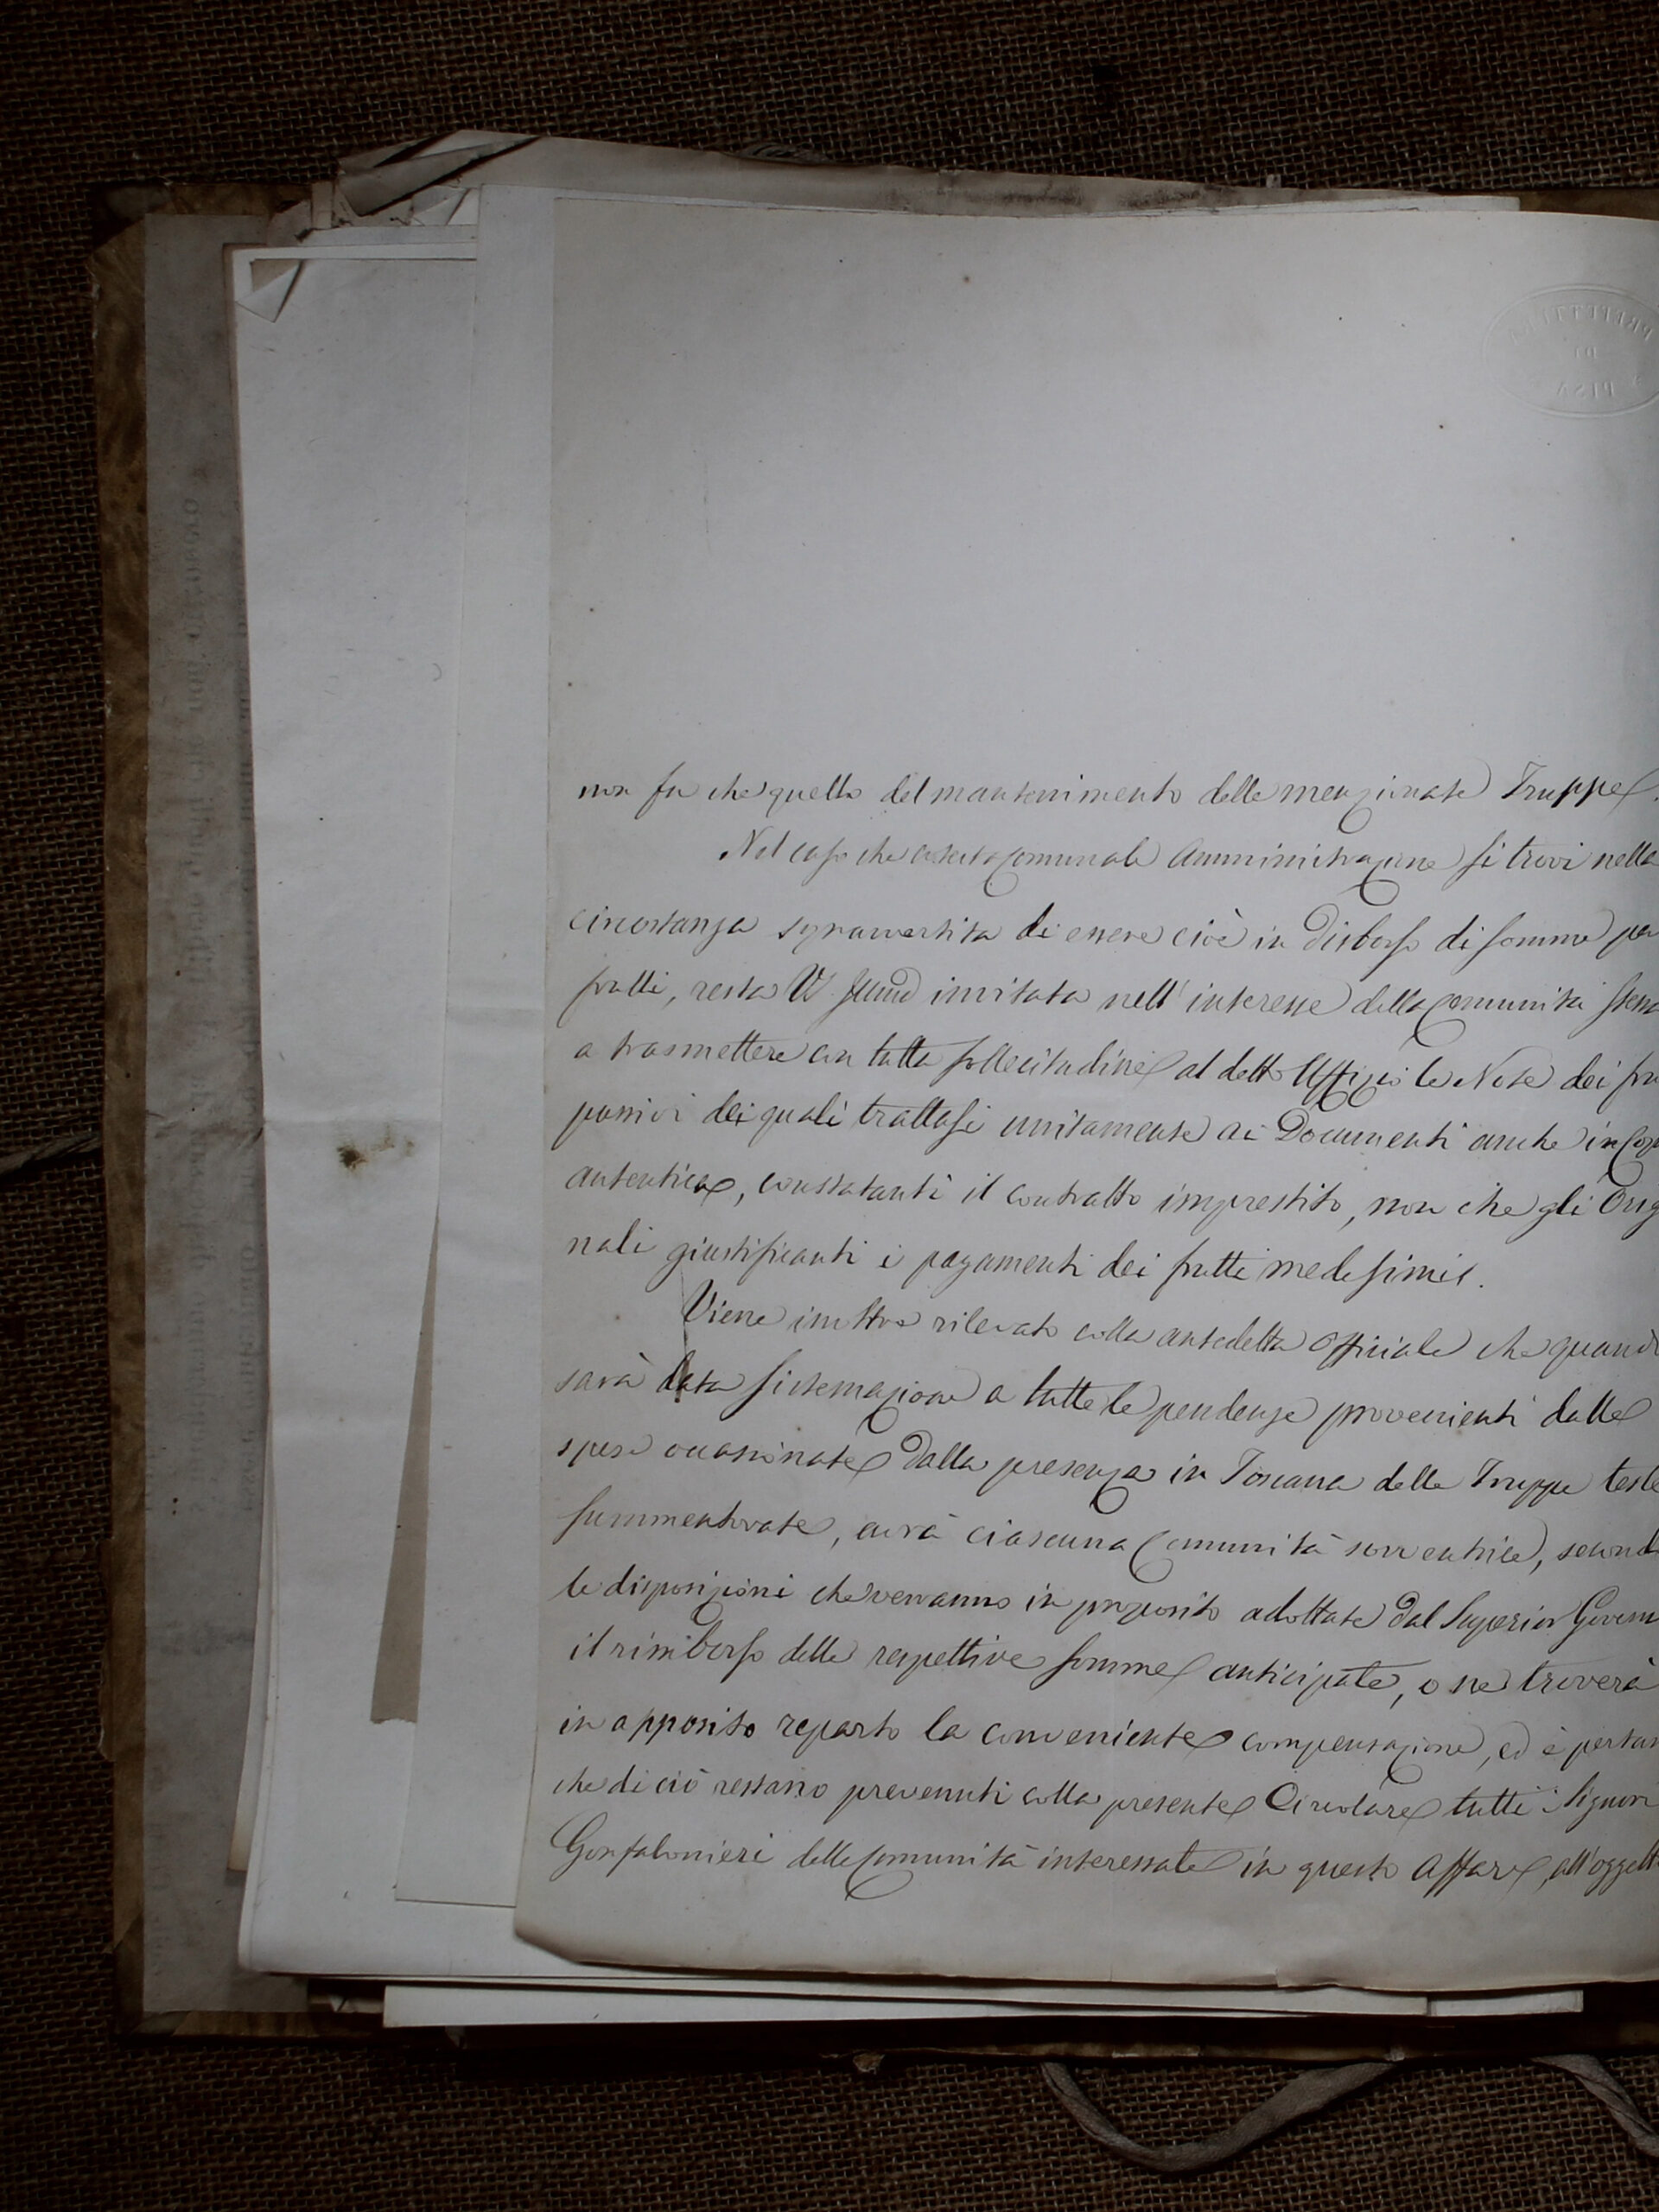 PREFETTURA
DI
PISA
non fu che quello del mantenimento delle menzionate Truppe.
Nel caso che cotesta Comunale Amministrazione si trovi nella
circostanza sopravvertita di essere cioè in disborso di somme per
frutti, resta invitata nell'interesse della Comunità stessa
a trasmettere con tutta sollecitudine al detto Uffizio le Note dei fru
passivi dei quali trattasi unitamente ai Documenti anche in Cop
autentica, constatanti il contratto imprestito, non che gli Orig
nali giustificanti i pagamenti dei frutti medesimi.
Viene inoltre rilevato colla antedetta Officiale che quand
sarà data sistemazione a tutte le pendenze provenienti dalle
spese occasionate dalla presenza in Toscana delle Truppe teste
summentovate, avrà ciascuna Comunità sovventrice, second
le disposizioni che verranno in proposito adottate dal Superior Govern
il rimborso delle respettive somme anticipate, o ne troverà
in apposito reparto la conveniente compensazione, ed è pertan
che di ciò restano prevenuti colla presente Circolare tutti i Signori
Gonfalonieri delle Comunità interessate in questo affare, all'oggett